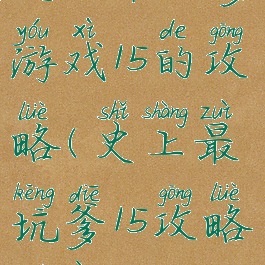 yóu xì de gōng
游戏15的攻
lüè shǐ shàng zuì
略(史上最
kēng diē gōng lüè
坑爹15攻略